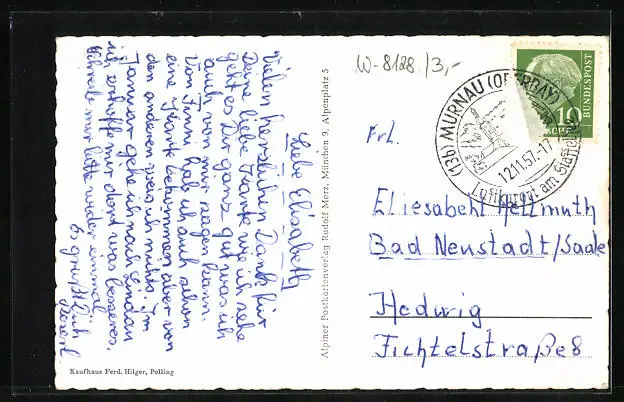 Liebe Elisabeth
Vielen herzlichen Dank für
Deine liebe Karte wie ich sehe
geht es Dir ganz gut was ich
auch von mir sagen kann.
Von Finni hab ich auch schon
eine Karte bekommen aber von
den anderen weis ich nichts. Im
Januar gehe ich nach Lindau
ich erhoffe mir dort was besseres.
Schreib mir bitte wieder einmal
Es grüßt Dich
Alpiner Postkartenverlag Rudolf Merz, München 9, Alpenplatz 5
Kaufhaus Ferd. Hilger, Polling
W-8128 /3,-
(13b) MURNAU (OBERBAY)
12.11.57.-17
Luftkurort am Staffelsee
10
BUNDESPOST
Frl.
Eliesabeht Hellmuth
Bad Neustadt/Saale
Hedwig
Fichtelstraße 8